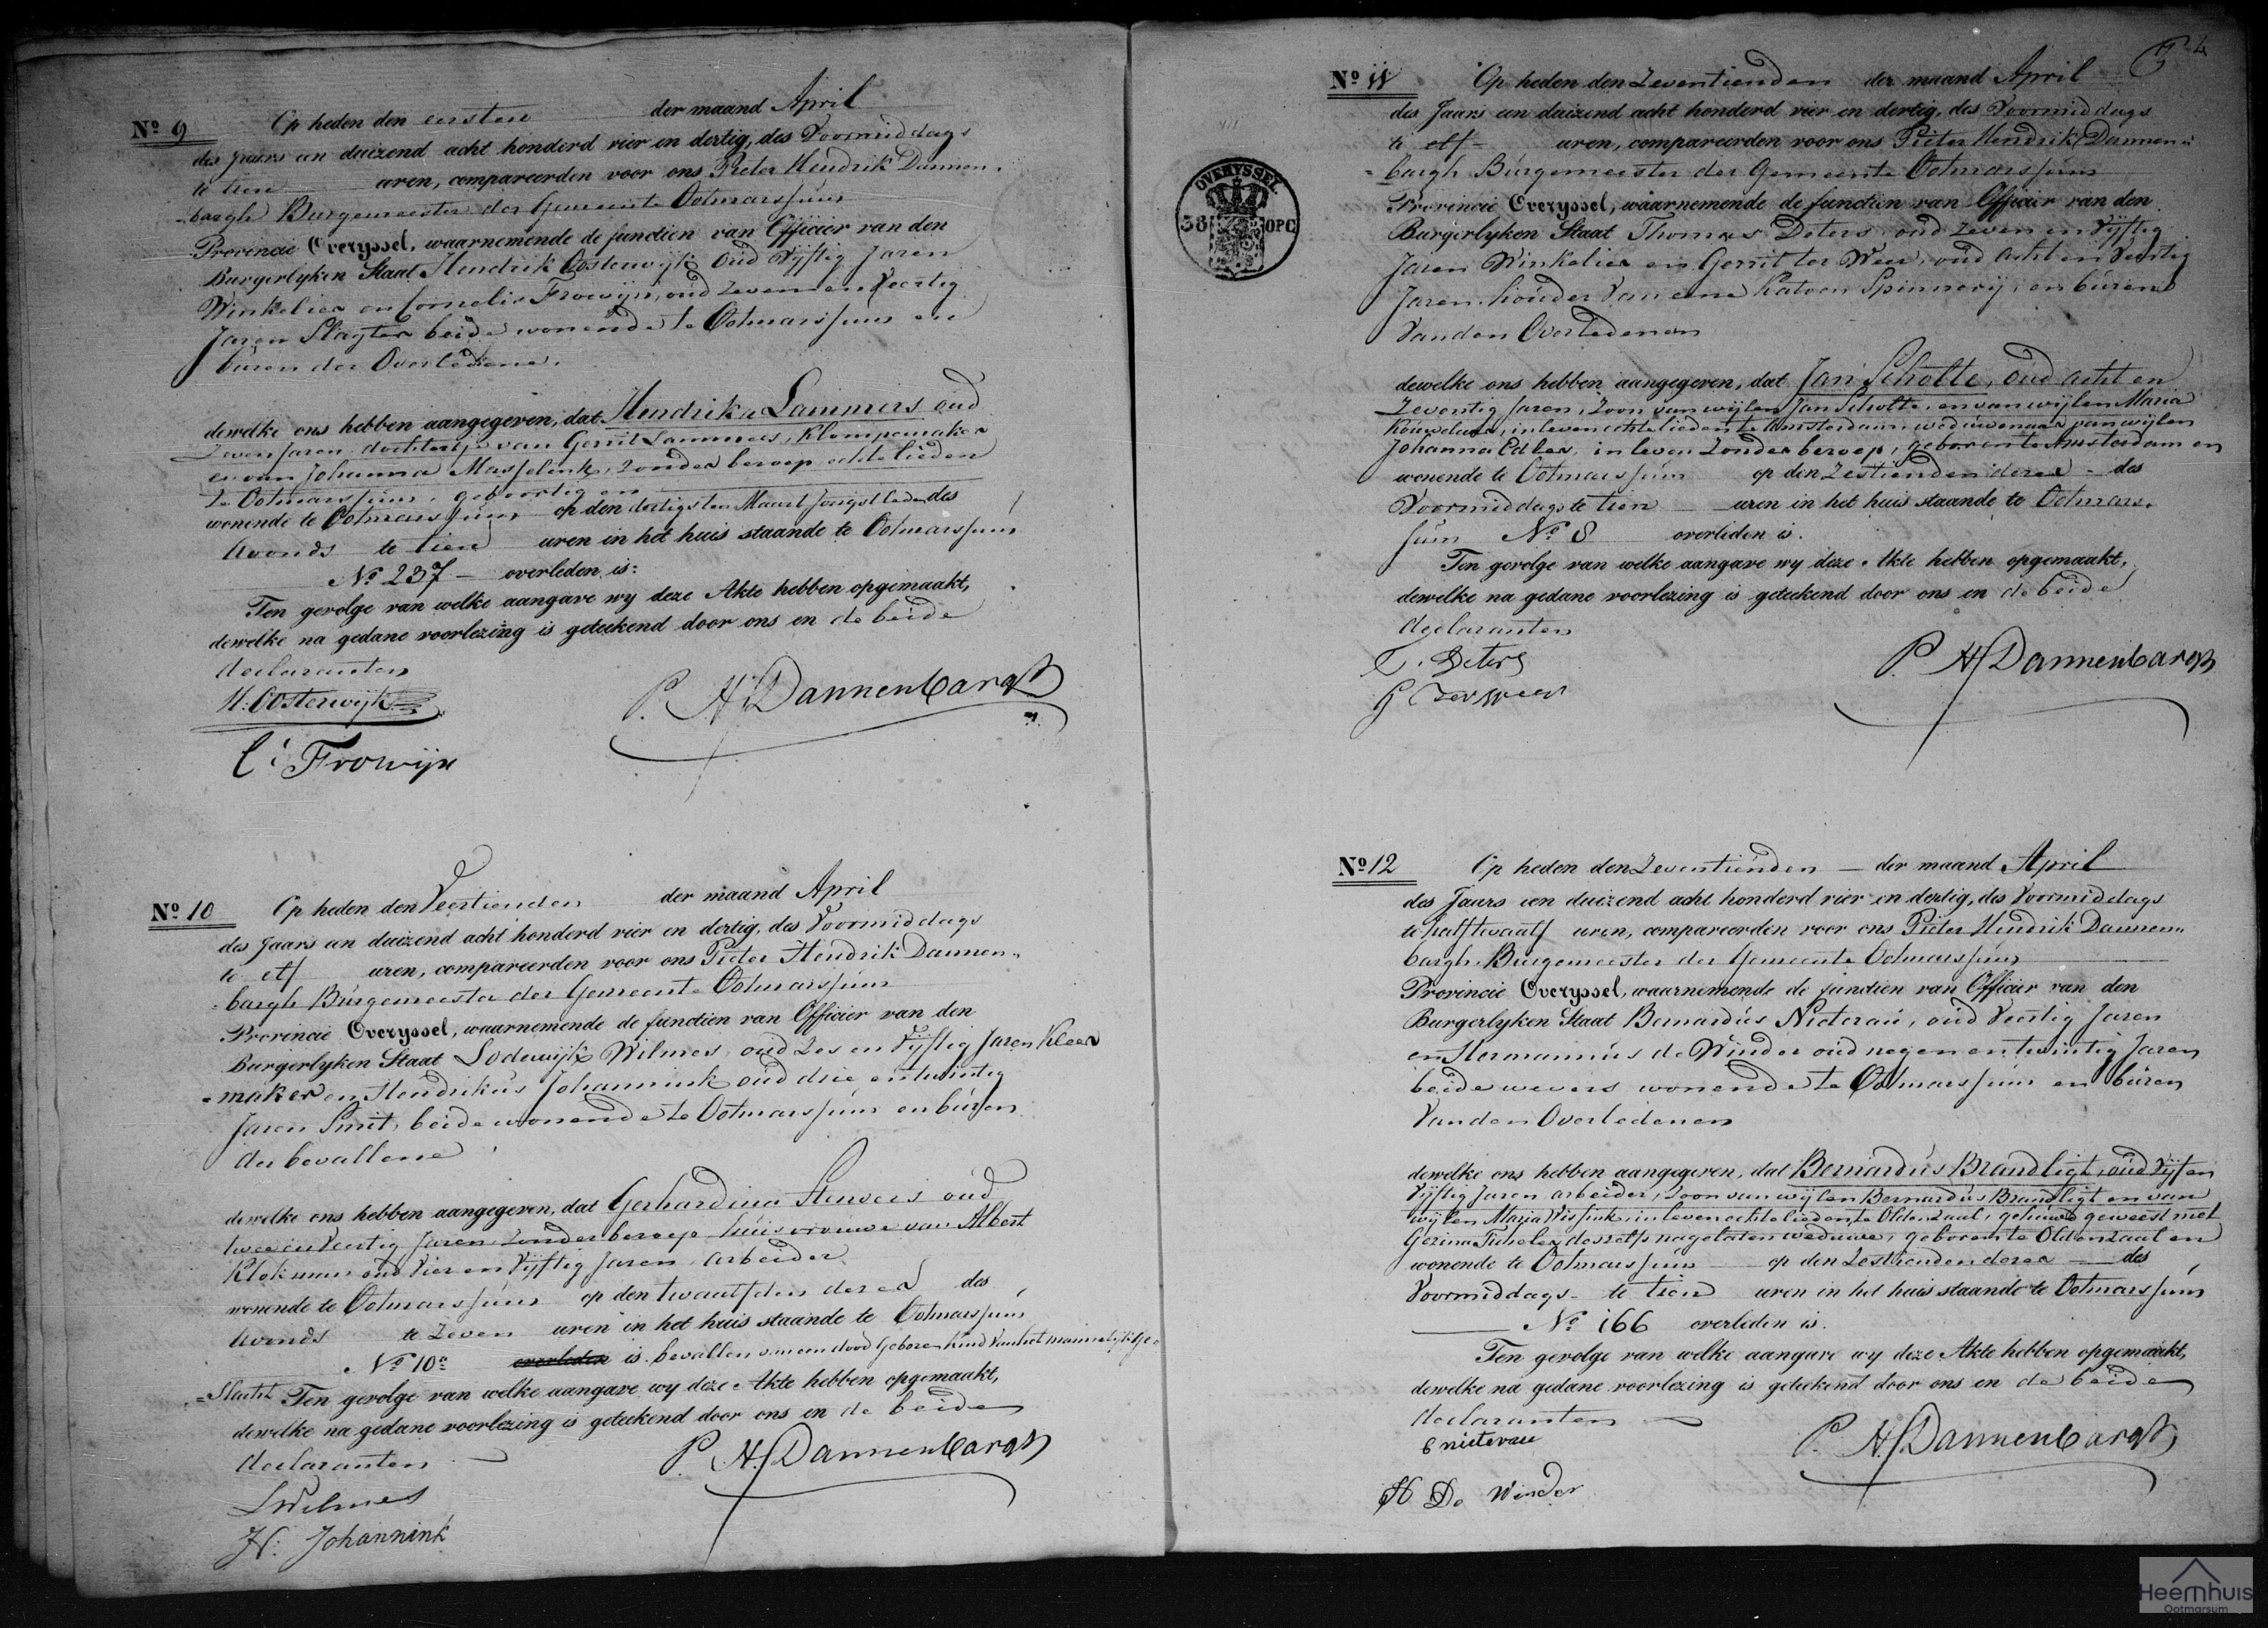 Nº 9 Op heden den eersten der maand April
des Jaars een duizend acht honderd vier en dertig, des Voormiddags
te tien uren, compareerden voor ons Pieter Hendrik Dannen-
bargh Burgemeester der Gemeente Ootmarssum
Provincie Overyssel, waarnemende de functien van Officier van den
Burgerlyken Staat Hendrik Oosterwijk oud Vijftig Jaren
Winkelier en Cornelis Frowijn, oud zeven en Veertig
Jaren Slagter beide wonende te Ootmarssum en
buren der Overledene.
dewelke ons hebben aangegeven, dat Hendrika Lammers oud
Zeven Jaren dochtertje van Gerrit Lammers, Klompemaker
en van Johanna Masselink, zonder beroep echtelieden
te Ootmarssum, geboortig en
wonende te Ootmarssum op den dertigsten Maart Jongstleden des
Avonds te tien uren in het huis staande te Ootmarssum
Nº 237 overleden is:
Ten gevolge van welke aangave wy deze Akte hebben opgemaakt,
dewelke na gedane voorlezing is geteekend door ons en de beide
declaranten
H. Oosterwijk
P. H. Dannenbargh
C: Frowijn
Nº 10 Op heden den Veertienden der maand April
des Jaars een duizend acht honderd vier en dertig, des Voormiddags
te elf uren, compareerden voor ons Pieter Hendrik Dannen-
bargh Burgemeester der Gemeente Ootmarssum
Provincie Overyssel, waarnemende de functien van Officier van den
Burgerlyken Staat Lodewijk Wilmes oud Zes en Vijftig Jaren Kleer
maker en Hendrikus Johannink oud drie en twintig
Jaren Smit, beide wonende te Ootmarssum en buren
der bevallene
dewelke ons hebben aangegeven, dat Gerhardina Stevers oud
twee en Veertig Jaren Zonder beroep huisvrouwe van Albert
Klokman oud Vier en Vijftig Jaren arbeider
wonende te Ootmarssum op den twaalfden dezer des
Avonds te Zeven uren in het huis staande te Ootmarssum
Nº 10a overleden is bevallen van een dood geboren Kind van het mannelijk ge-
Slacht Ten gevolge van welke aangave wy deze Akte hebben opgemaakt,
dewelke na gedane voorlezing is geteekend door ons en de beide
declaranten
P. H. Dannenbargh
LWilmes
H. Johannink
Nº 11 Op heden den Zeventienden der maand April
des Jaars een duizend acht honderd vier en dertig, des Voormiddags
te elf uren, compareerden voor ons Pieter Hendrik Dannen-
bargh Burgemeester der Gemeente Ootmarssum
Provincie Overyssel, waarnemende de functien van Officier van den
Burgerlyken Staat Thomas Deters oud Zeven en Vijftig
Jaren Winkelier en Gerrit ter Weer, oud Acht en Veertig
Jaren houder van eene Katoen Spinnerij, en buren
van den Overledenen
dewelke ons hebben aangegeven, dat Jan Scholte, oud acht en
Zeventig Jaren, Zoon van wijlen Jan Scholte, en van wijlen Maria
in leven echtelieden te Amsterdam weduwenaar van wijlen
Johanna Edler, in leven Zonder beroep, geboren te Amsterdam en
wonende te Ootmarssum op den Zestienden dezer des
Voormiddags te tien uren in het huis staande te Ootmars-
sum Nº 8 overleden is.
Ten gevolge van welke aangave wy deze Akte hebben opgemaakt,
dewelke na gedane voorlezing is geteekend door ons en de beide
declaranten
T. Deters
P. H. Dannenbargh
G Ter weer
OVERYSSEL
38 OPC
Nº 12 Op heden den Zeventienden der maand April
des Jaars een duizend acht honderd vier en dertig, des Voormiddags
te half twaalf uren, compareerden voor ons Pieter Hendrik Dannen-
bargh Burgemeester der Gemeente Ootmarssum
Provincie Overyssel, waarnemende de functien van Officier van den
Burgerlyken Staat Bernardus Nieterau, oud Veertig Jaren
en Hermannus de Winder oud negen en twintig Jaren
beide wevers wonende te Ootmarssum en buren
van den Overledenen
dewelke ons hebben aangegeven, dat Bernardus Brandligt, oud Vijf en
Vijftig Jaren arbeider, Zoon van wijlen Bernardus Brandligt en van
wijlen Maria Vissink, in leven echtelieden te Oldenzaal, gehuwd geweest met
Gezina deszelfs nagelaten weduwe, geboren te Oldenzaal en
wonende te Ootmarssum op den Zestienden dezer des
Voormiddags te tien uren in het huis staande te Ootmarssum
Nº 166 overleden is.
Ten gevolge van welke aangave wy deze Akte hebben opgemaakt,
dewelke na gedane voorlezing is geteekend door ons en de beide
declaranten
P. H. Dannenbargh
B nieterau
H De Winder
Heemhuis
Ootmarsum